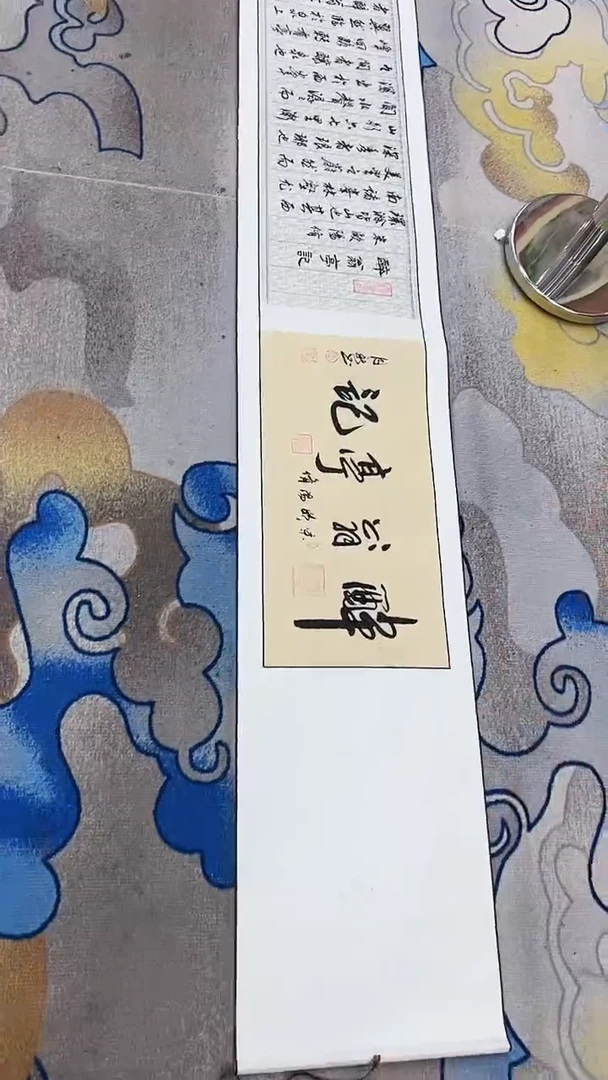 醉翁亭记
宋欧阳脩
醉翁亭記
宋歐陽脩
環滁皆山也其西
南諸峯林壑尤
美望之蔚然而
深秀者琅琊也
山行六七里漸
聞水聲潺潺而
瀉出於兩峯之
間者釀泉也
峯回路轉有亭
翼然臨於泉上